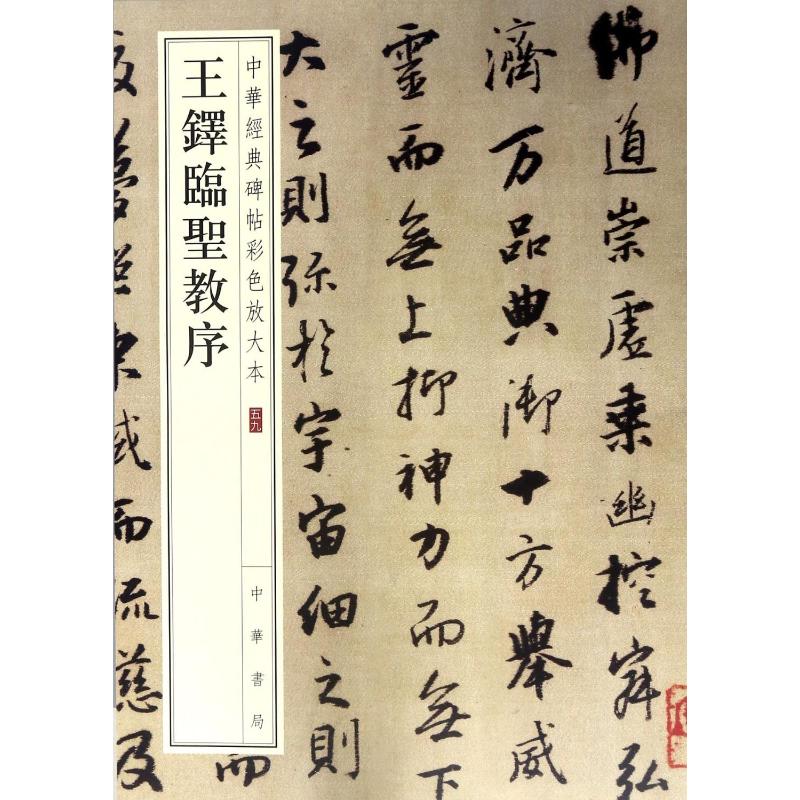 佛道崇虛乘幽控寂弘
濟万品典御十方舉威
靈而無上抑神力而無下
大之則弥於宇宙細之則
而
中華經典碑帖彩色放大本
五九
中華書局
王鐸臨聖教序
而流慈及